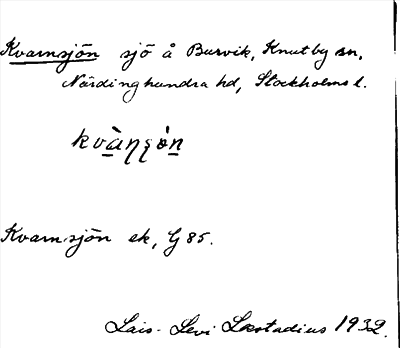 Kvarnsjön sjö å Burvik, Knutby sn,
Närdinghundra hd, Stockholms l.
Kvarnsjön ek, G 85.
Lars-Levi Læstadius 1932.